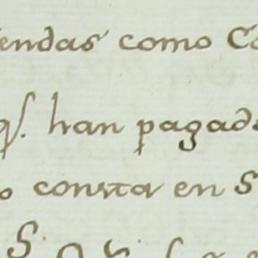 endas como Co
qͥ. han pagad
o consta en S